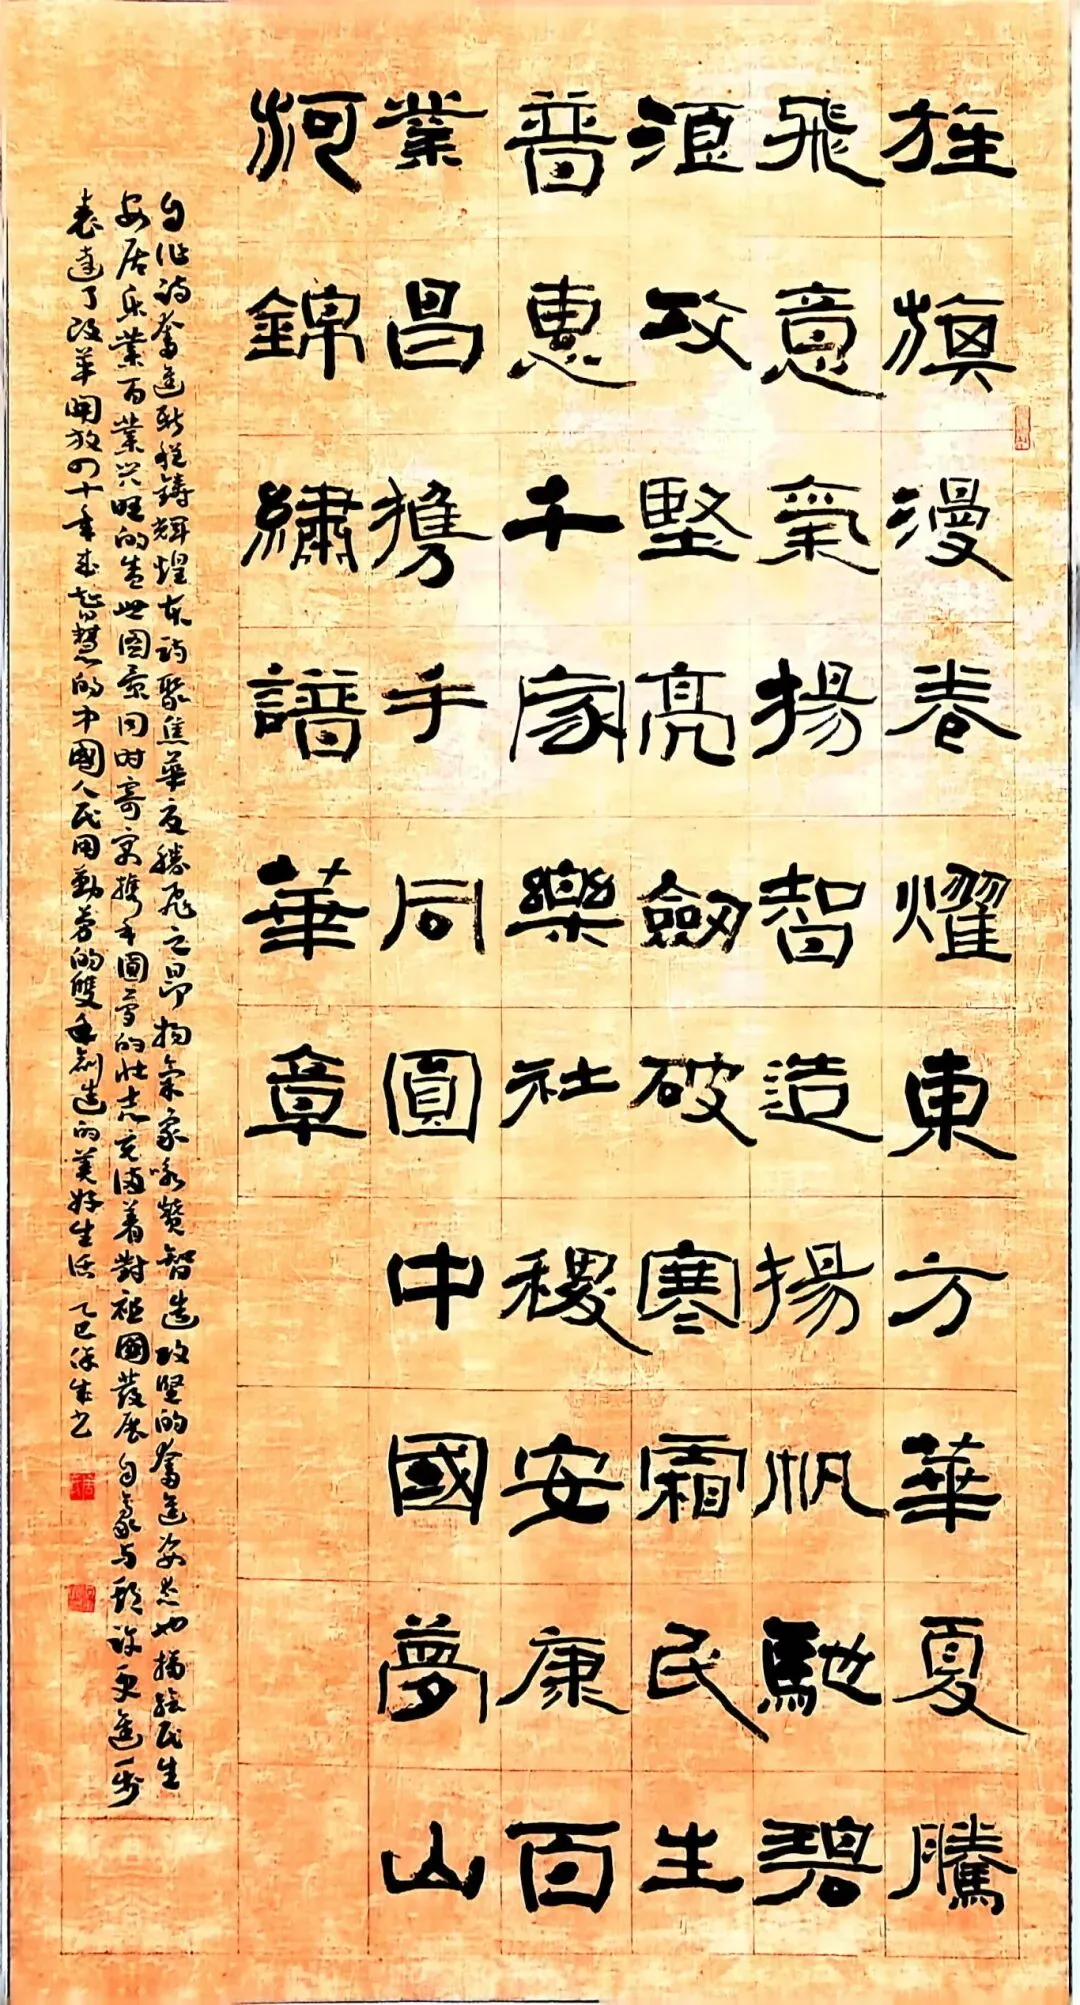 旌旗漫卷耀東方華夏騰
飛意氣揚智造揚帆馳碧
浪攻堅亮劍破寒霜民生
普惠千家樂社稷安康百
業昌携手同圓中國夢山
河錦繡譜華章
自作诗奮進新程鑄輝煌本诗聚焦華夏騰飛之昂揚氣象咏贊智造攻堅的奮進姿态也描绘民生
安居乐業百業兴旺的盛世图景同时寄寓携手圆夢的壮志充满着對祖國發展自豪与期许更進一步
表達了改革開放四十年来智慧的中國人民用勤劳的雙手創造的美好生活 乙巳 书